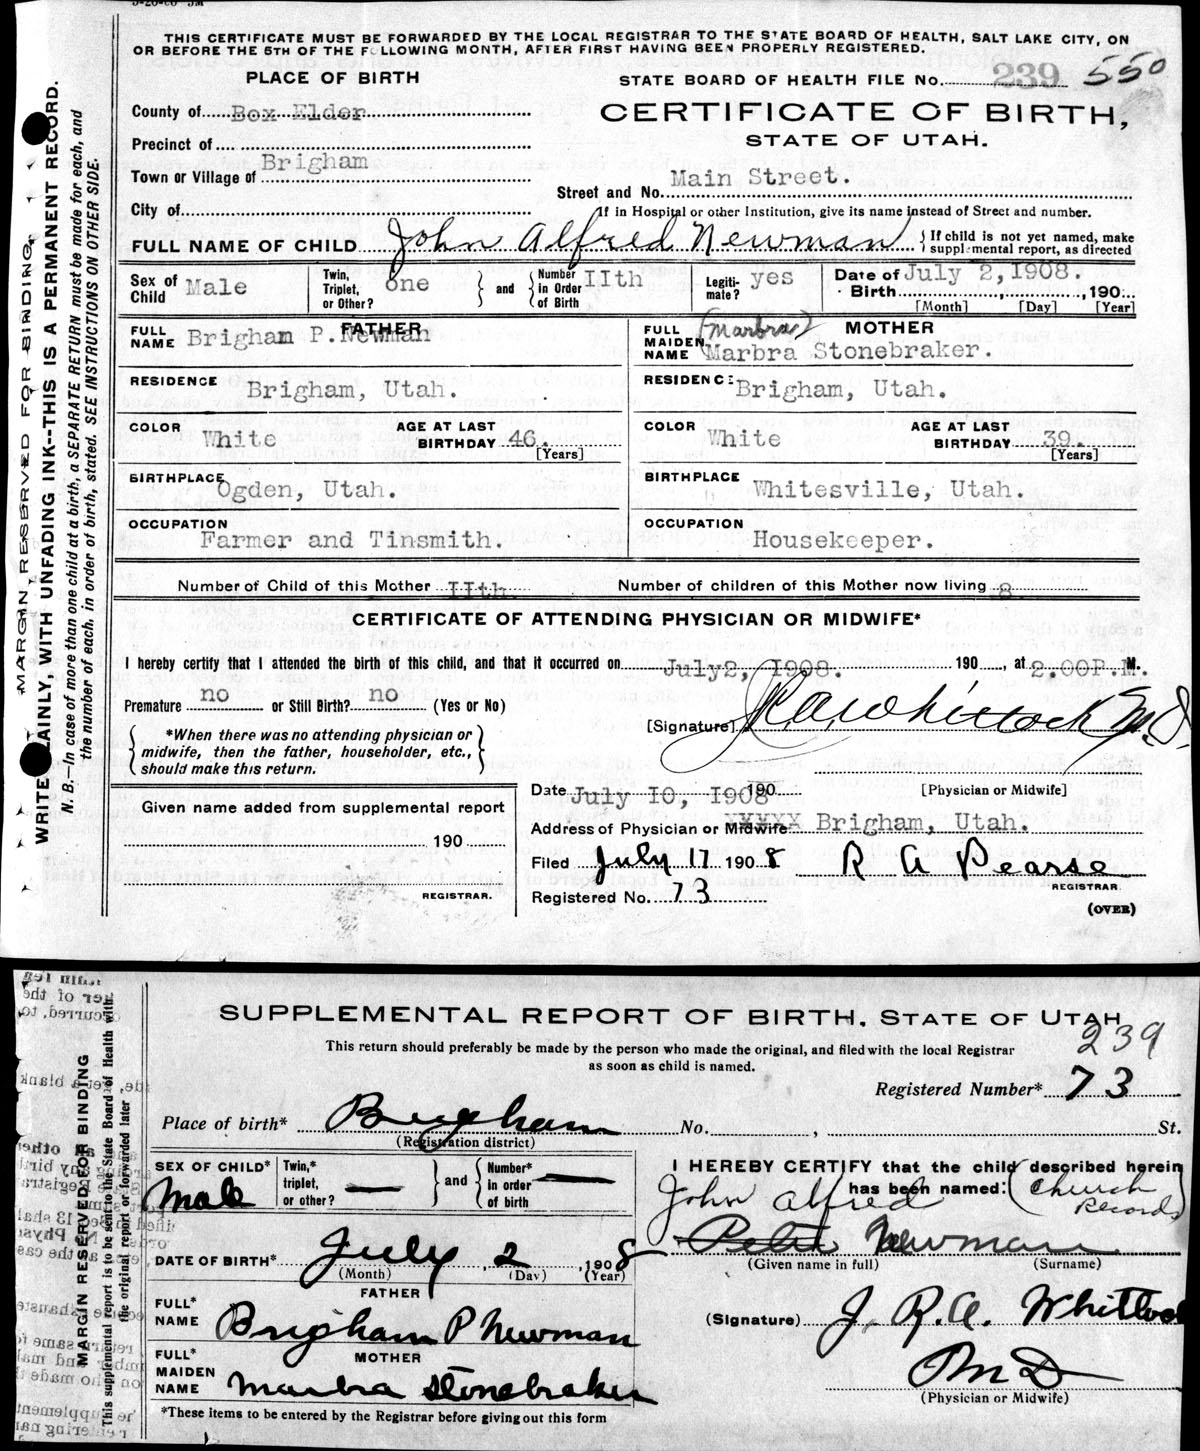 THIS CERTIFICATE MUST BE FORWARDED BY THE LOCAL REGISTRAR TO THE STATE BOARD OF HEALTH, SALT LAKE CITY, ON
OR BEFORE THE 5TH OF THE FOLLOWING MONTH, AFTER FIRST HAVING BEEN PROPERLY REGISTERED.
PLACE OF BIRTH
STATE BOARD OF HEALTH FILE No. 239 550
County of Box Elder
CERTIFICATE OF BIRTH,
STATE OF UTAH.
Precinct of
Town or Village of Brigham
Street and No. Main Street.
City of
If in Hospital or other Institution, give its name instead of Street and number.
FULL NAME OF CHILD John Alfred Newman { If child is not yet named, make
supplemental report, as directed
Sex of Child Male
Twin, Triplet, or Other? one
and
Number in Order of Birth IIth
Legitimate? yes
Date of Birth July 2, 1908. 190
[Month] [Day] [Year]
FATHER
FULL NAME Brigham P. Newman
RESIDENCE Brigham, Utah.
COLOR White
AGE AT LAST BIRTHDAY 46.
[Years]
BIRTHPLACE Ogden, Utah.
OCCUPATION Farmer and Tinsmith.
MOTHER
FULL MAIDEN NAME (Marbra) Marbra Stonebraker.
RESIDENCE Brigham, Utah.
COLOR White
AGE AT LAST BIRTHDAY 39.
[Years]
BIRTHPLACE Whitesville, Utah.
OCCUPATION Housekeeper.
Number of Child of this Mother IIth Number of children of this Mother now living 8
CERTIFICATE OF ATTENDING PHYSICIAN OR MIDWIFE*
I hereby certify that I attended the birth of this child, and that it occurred on July 2, 1908. 190, at 2.00P.M.
Premature no or Still Birth? no (Yes or No)
[Signature] J R A Whittock M.D.
*When there was no attending physician or
midwife, then the father, householder, etc.,
should make this return.
[Physician or Midwife]
Date July 10, 1908 190
Address of Physician or Midwife Brigham, Utah.
Given name added from supplemental report
190
REGISTRAR.
Filed July 17 190 8 R A Pearse
REGISTRAR
Registered No. 73
(OVER)
MARGIN RESERVED FOR BINDING.
WRITE PLAINLY, WITH UNFADING INK--THIS IS A PERMANENT RECORD.
N. B.—In case of more than one child at a birth, a SEPARATE RETURN must be made for each, and
the number of each, in order of birth, stated. SEE INSTRUCTIONS ON OTHER SIDE.
SUPPLEMENTAL REPORT OF BIRTH, STATE OF UTAH
239
This return should preferably be made by the person who made the original, and filed with the local Registrar
as soon as child is named.
Registered Number* 73
Place of birth* Brigham No. , St.
(Registration district)
SEX OF CHILD* Male
Twin,* triplet, or other? —
and
Number* in order of birth —
I HEREBY CERTIFY that the child described herein
has been named: (Church Records)
John Alfred
Peter Newman
(Given name in full) (Surname)
DATE OF BIRTH* July 2, 1908
(Month) (Day) (Year)
FATHER
FULL* NAME Brigham P Newman
(Signature) J. R. A. Whittock
M D
(Physician or Midwife)
MOTHER
FULL* MAIDEN NAME Marbra Stonebraker
*These items to be entered by the Registrar before giving out this form
MARGIN RESERVED FOR BINDING
This supplemental report is to be sent to the State Board of Health with
the original report or forwarded later